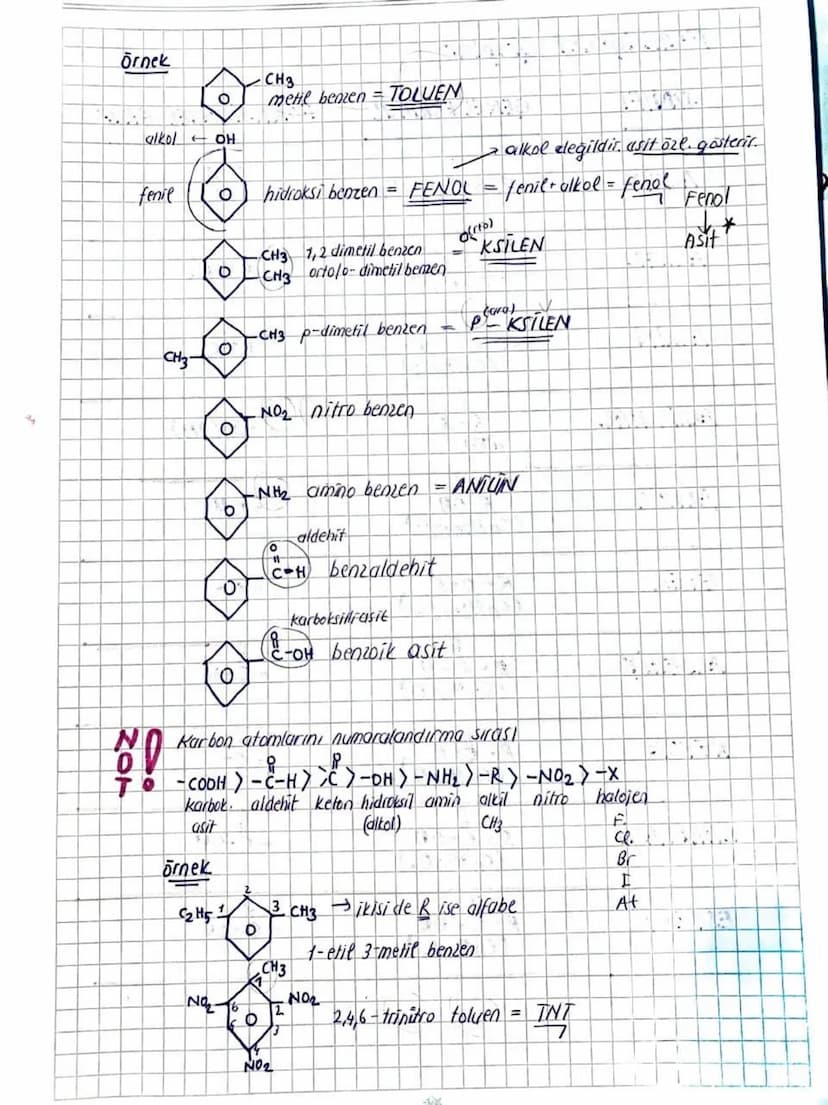 örnek
CH3
metil benzen = TOLUEN
alkol ← OH
→ alkol değildir. asit özl. gösterir.
fenil
hidroksi benzen = FENOL = fenil + alkol = fenol
Fenol
↓
Asit *
CH3 1,2 dimetil benzen = o(rto) KSİLEN
CH3 orto/o- dimetil benzen
CH3 CH3 p-dimetil benzen = p(ara) - KSİLEN
NO2 nitro benzen
NH2 amino benzen = ANİLİN
aldehit
O
C-H benzaldehit
karboksilik asit
O
C-OH benzoik asit
NOT!
Karbon atomlarını numaralandırma sırası
O O
-COOH > -C-H > >C > -OH > -NH2 > -R > -NO2 > -X
karbok. aldehit keton hidroksil amin alkil nitro halojen
asit (alkol) CH3 F
Cl
Br
I
At
örnek
2
C2H5 1 3 CH3 → ikisi de R ise alfabe
1-etil 3-metil benzen
CH3
1
NO2 6 2 NO2
5 3
2,4,6-trinitro toluen = TNT
4
NO2